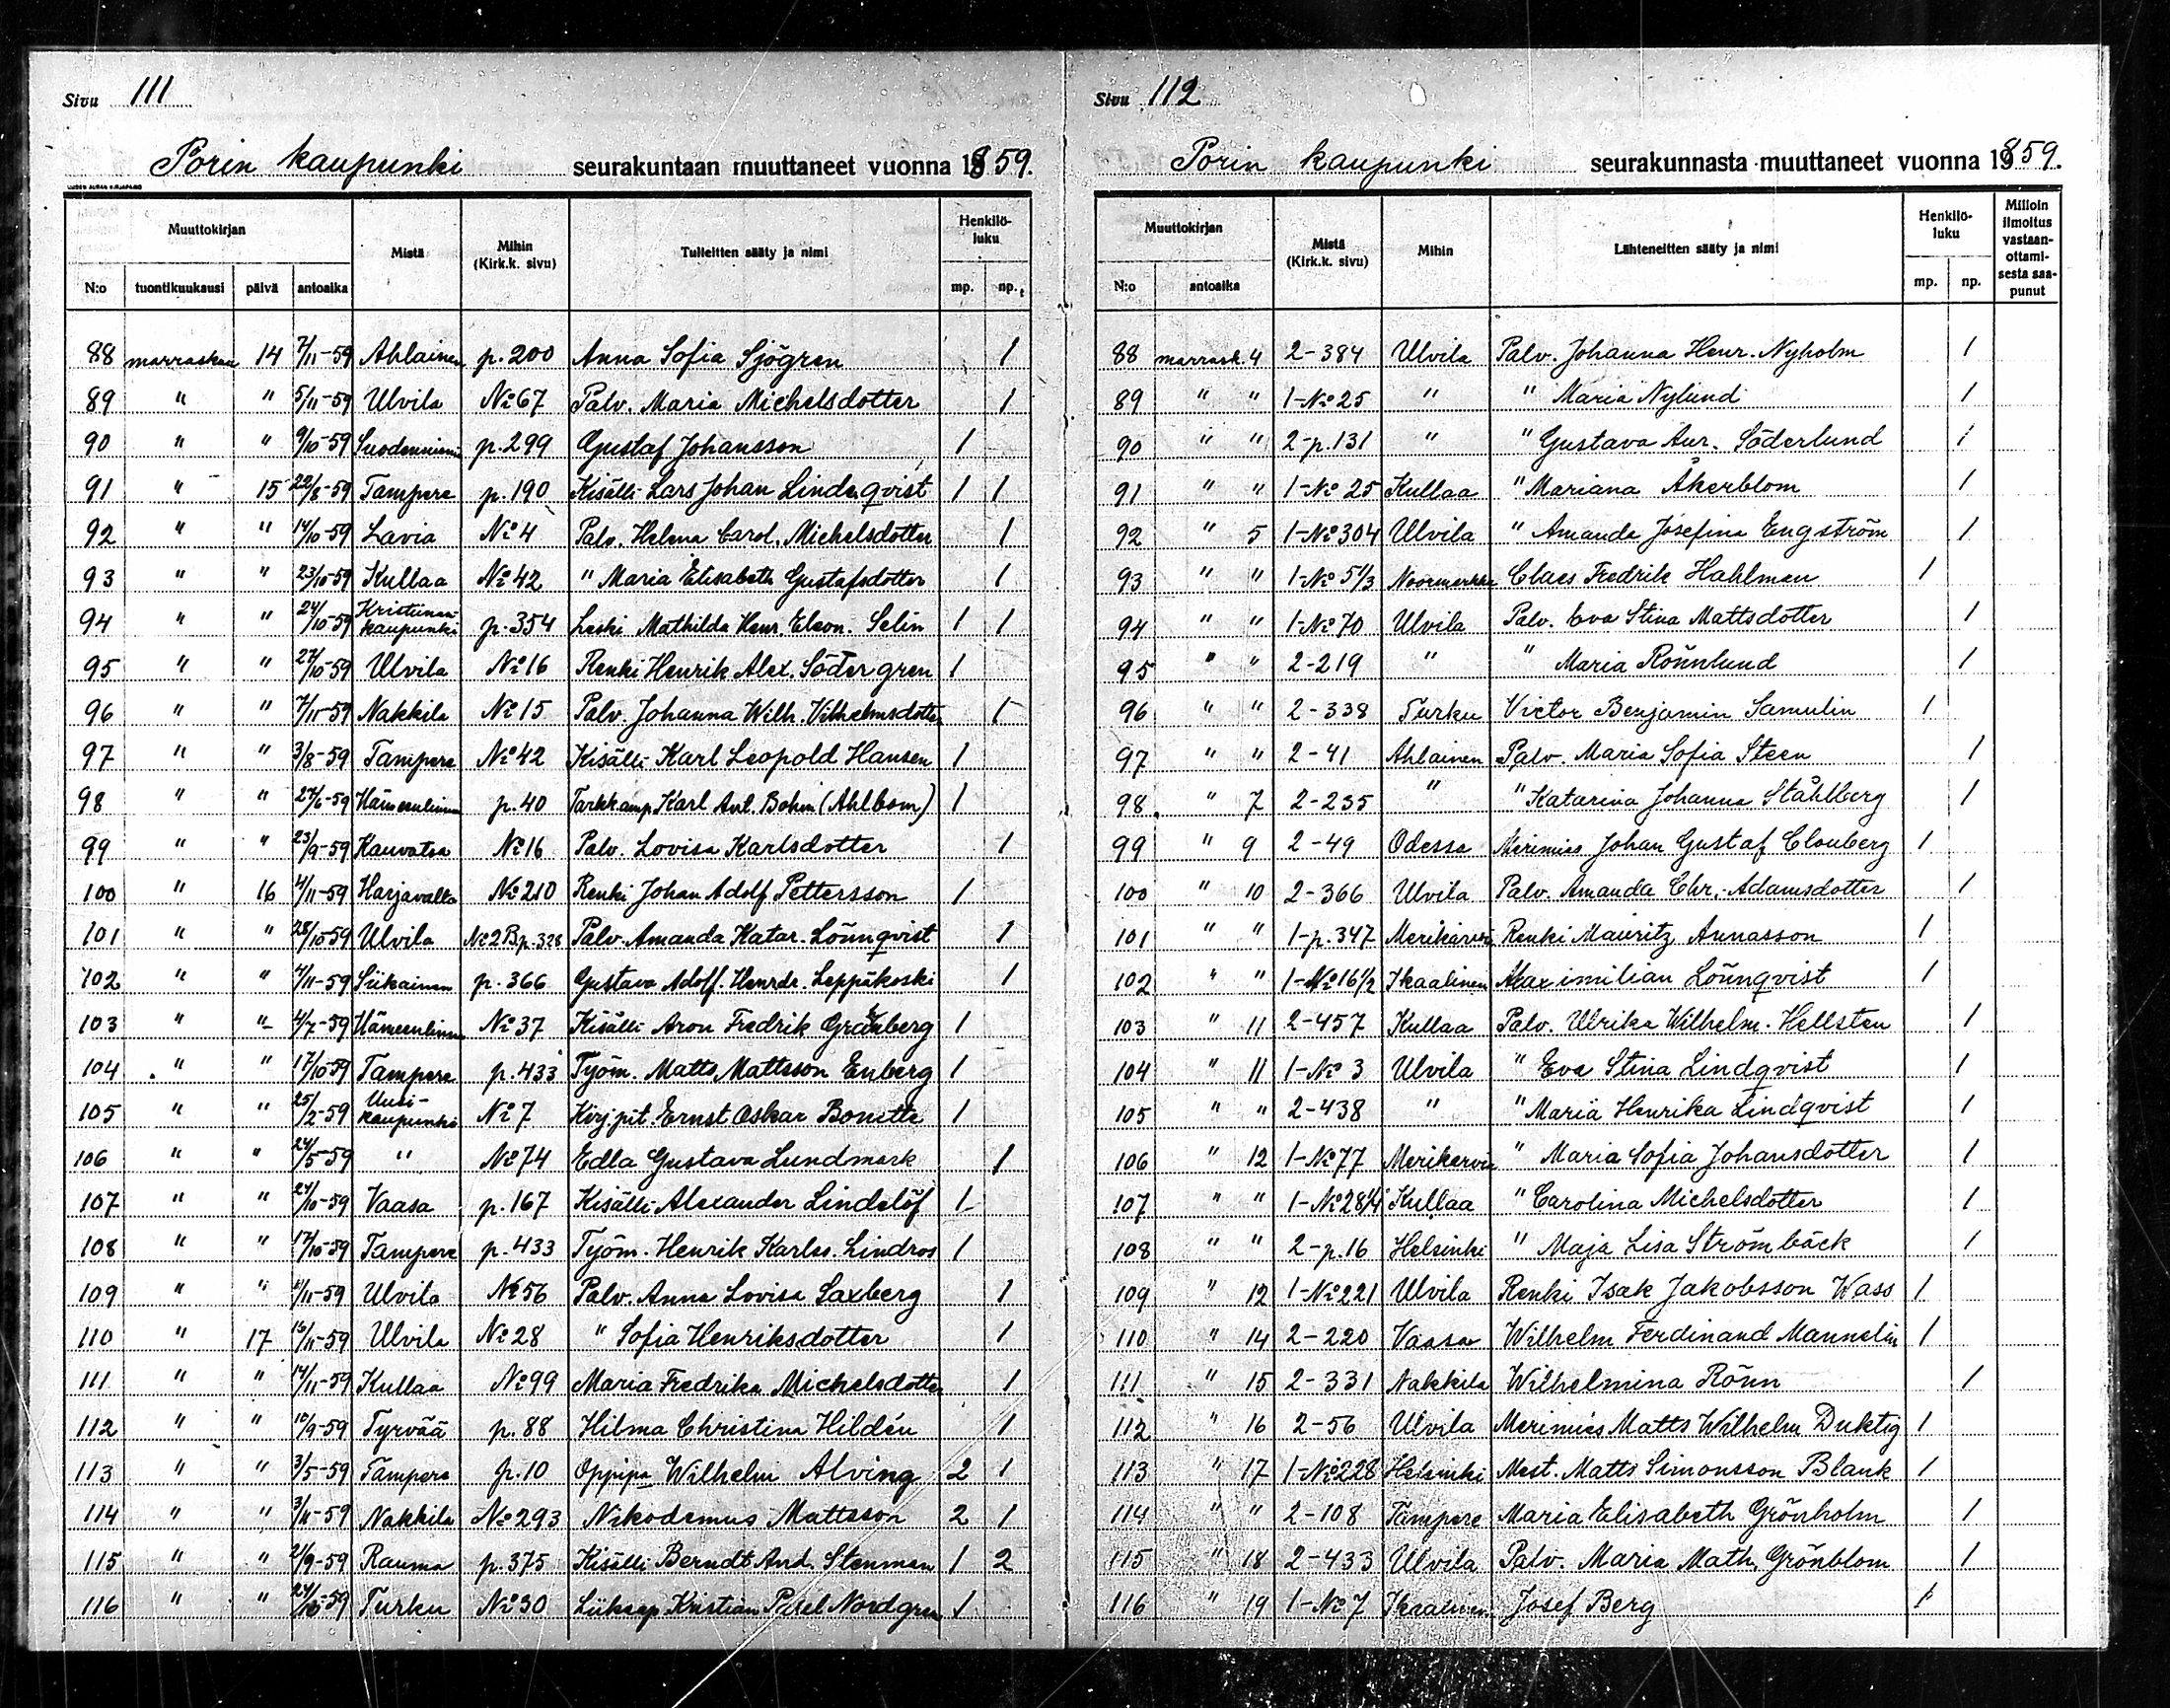 Sivu 111
Porin kaupunki seurakuntaan muuttaneet vuonna 1859.
UUDEN AURAN KIRJAPAINO
Muuttokirjan Mistä Mihin (Kirk.k. sivu) Tulleitten sääty ja nimi Henkilö-luku
N:o tuontikuukausi päivä antoaika mp. np.
88 marraskuu 14 7/11-59 Ahlainen p. 200 Anna Sofia Sjögren 1
89 " " 5/11-59 Ulvila No 67 Palv. Maria Michelsdotter 1
90 " " 9/10-59 Suodenniemi p. 299 Gustaf Johansson 1
91 " 15 22/8-59 Tampere p. 190 Kisälli Lars Johan Lindeqvist 1 1
92 " " 14/10-59 Lavia No 4 Palv. Helena Carol. Michelsdotter 1
93 " " 23/10-59 Kullaa No 42 " Maria Elisabeth Gustafsdotter 1
94 " " 24/10-59 Kristiinan-kaupunki p. 354 Leski Mathilda Henr. Eleon. Selin 1 1
95 " " 27/10-59 Ulvila No 16 Renki Henrik Alex. Södergren 1
96 " " 7/11-59 Nakkila No 15 Palv. Johanna Wilh. Vilhelmsdotter 1
97 " " 3/8-59 Tampere No 42 Kisälli Karl Leopold Hansen 1
98 " " 27/6-59 Hämeenlinna p. 40 Karl Ant. Bohm (Ahlbom) 1
99 " " 23/9-59 Kauvatsa No 16 Palv. Lovisa Karlsdotter 1
100 " 16 4/11-59 Harjavalta No 210 Renki Johan Adolf Pettersson 1
101 " " 28/10-59 Ulvila No 2 B p. 328 Palv. Amanda Katar. Lönnqvist 1
102 " " 4/11-59 Siikainen p. 366 Gustava Adolf. Henrdr. Leppäkoski 1
103 " " 4/7-59 Hämeenlinna No 37 Kisälli Aron Fredrik 1
104 " " 17/10-59 Tampere p. 433 Työm. Matts Mattsson Enberg 1
105 " " 25/2-59 Uusi-kaupunki No 7 Kirj.pit. Ernst Oskar Bonette 1
106 " " 24/5-59 " No 74 Edla Gustava Lundmark 1
107 " " 24/10-59 Vaasa p. 167 Kisälli Alexander Lindelöf 1
108 " " 17/10-59 Tampere p. 433 Työm. Henrik Karlss. Lindros 1
109 " " Ulvila No 56 Palv. Anna Lovisa Saxberg 1
110 " 17 16/11-59 Ulvila No 28 " Sofia Henriksdotter 1
111 " " 14/11-59 Kullaa No 99 Maria Fredrika Michelsdotter 1
112 " " 10/9-59 Tyrvää p. 88 Hilma Christina Hildén 1
113 " " 3/5-59 Tampere p. 10 Oppipa Wilhelm Alving 2 1
114 " " 3/11-59 Nakkila No 293 Nikodemus Mattsson 2 1
115 " " 2/9-59 Rauma p. 375 Kisälli Berndt And. Stenman 1 2
116 " " 24/10-59 Turku No 30 Liiksap Kristian Nordgren 1
Sivu 112
Porin kaupunki seurakunnasta muuttaneet vuonna 1859.
Muuttokirjan Mistä (Kirk.k. sivu) Mihin Lähteneitten sääty ja nimi Henkilö-luku Milloin ilmoitus vastaan-ottami-sesta saa-punut
N:o antoaika mp. np.
88 marrask. 4 2-384 Ulvila Palv. Johanna Henr. Nyholm 1
89 " " 1-No 25 " " Maria Nylund 1
90 " " 2-p. 131 " " Gustava Aur. Söderlund 1
91 " " 1-No 25 Kullaa " Mariana Åkerblom 1
92 " 5 1-No 304 Ulvila " Amanda Josefina Engström 1
93 " " 1-No 5 1/3 Noormarkku Claes Fredrik Hahlman 1
94 " " 1-No 70 Ulvila Palv. Eva Stina Mattsdotter 1
95 " " 2-219 " " Maria Rönnlund 1
96 " " 2-338 Turku Victor Benjamin Samulin 1
97 " " 2-41 Ahlainen Palv. Maria Sofia Steen 1
98 " 7 2-235 " " Katarina Johanna Ståhlberg 1
99 " 9 2-49 Odessa Merimies Johan Gustaf Clouberg 1
100 " 10 2-366 Ulvila Palv. Amanda Chr. Adamsdotter 1
101 " " 1-p. 347 Merikarvia Renki Mauritz Annasson 1
102 " " 1-No 16 1/2 Ikaalinen Maximilian Lönnqvist 1
103 " 11 2-457 Kullaa Palv. Ulrika Wilhelm. Hellsten 1
104 " 11 1-No 3 Ulvila " Eva Stina Lindqvist 1
105 " " 2-438 " " Maria Henrika Lindqvist 1
106 " 12 1-No 77 Merikarvia " Maria Sofia Johansdotter 1
107 " " 1-No 28 1/4 Kullaa " Carolina Michelsdotter 1
108 " " 2-p. 16 Helsinki " Maja Lisa Strömbäck 1
109 " 12 1-No 221 Ulvila Renki Isak Jakobsson Wass 1
110 " 14 2-220 Vaasa Wilhelm Ferdinand Mannelin 1
111 " 15 2-331 Nakkila Wilhelmina Rönn 1
112 " 16 2-56 Ulvila Merimies Matts Wilhelm Duktig 1
113 " 17 1-No 228 Helsinki Mest. Matts Simonsson Blank 1
114 " " 2-108 Tampere Maria Elisabeth Grönholm 1
115 " 18 2-433 Ulvila Palv. Maria Math. Grönblom 1
116 " 19 1-No 7 Ikaalinen Josef Berg 1